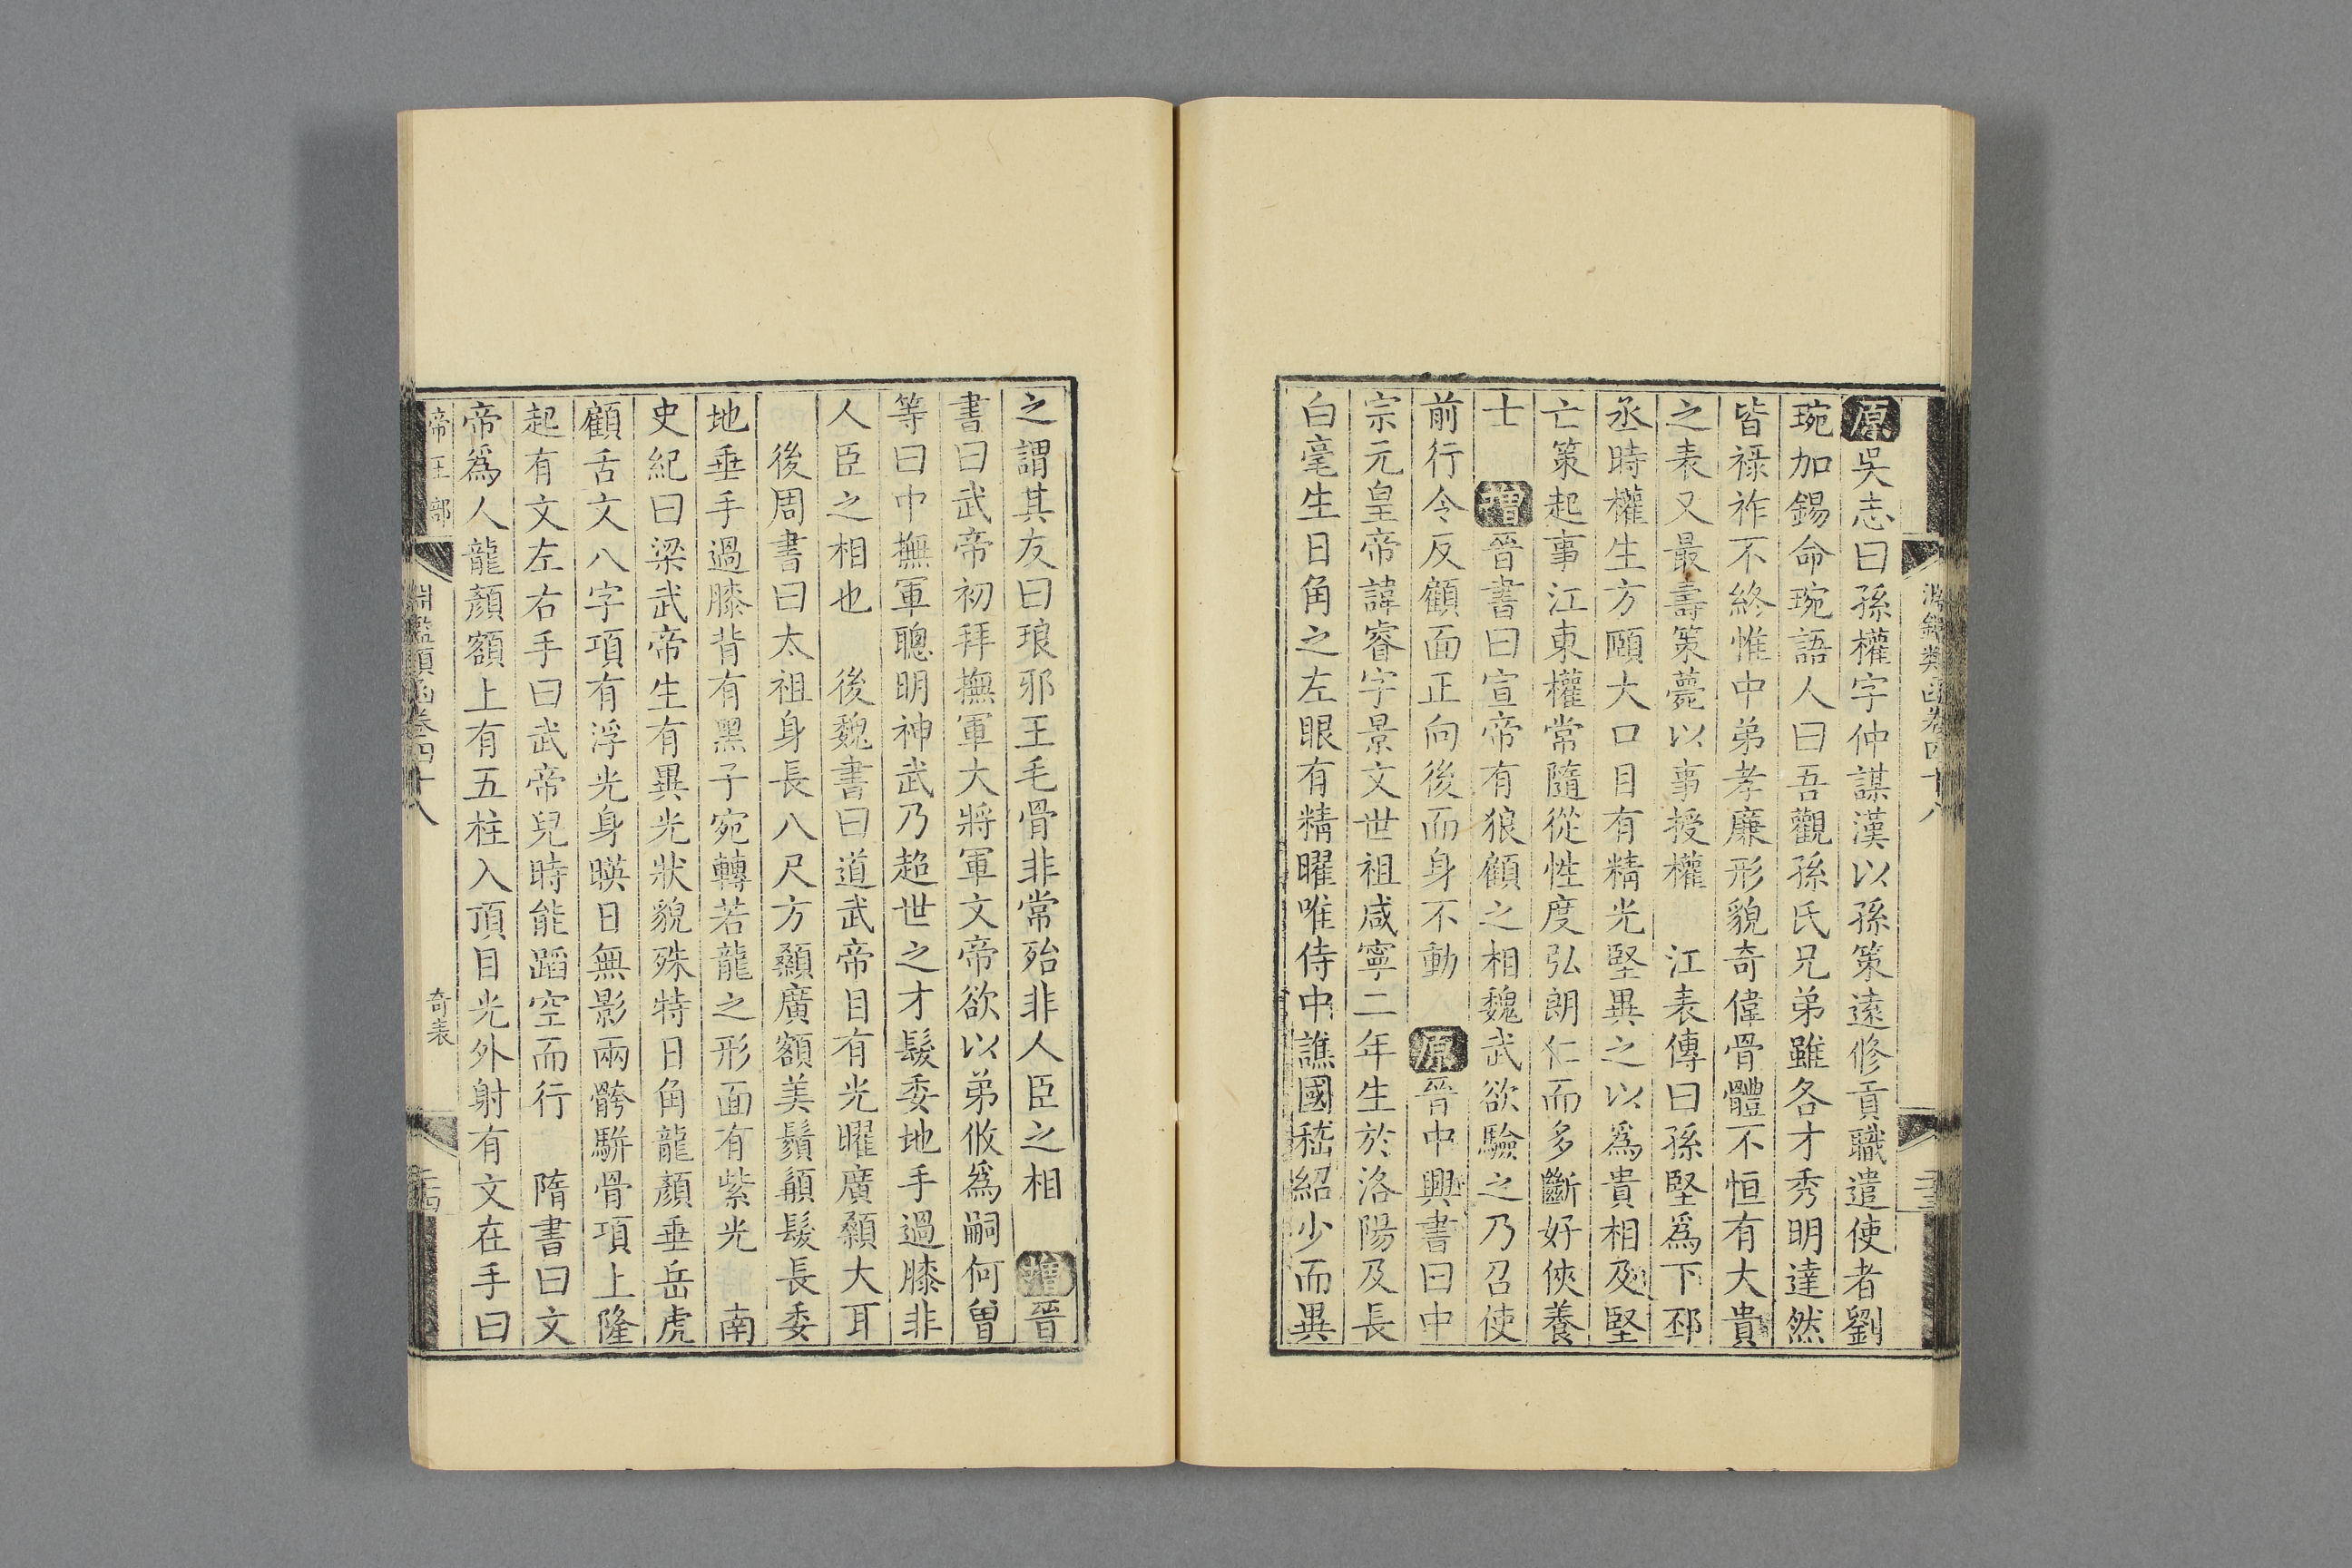 淵鑑類函卷四十八
原吳志曰孫權字仲謀漢以孫策遠修貢職遣使者劉
琬加錫命琬語人曰吾觀孫氏兄弟雖各才秀明達然
皆祿祚不終惟中弟孝廉形貌奇偉骨體不恒有大貴
之表又最壽策薨以事授權 江表傳曰孫堅爲下邳
丞時權生方頤大口目有精光堅異之以爲貴相及堅
亡策起事江東權常隨從性度弘朗仁而多斷好俠養
士 增晉書曰宣帝有狼顧之相魏武欲驗之乃召使
前行令反顧面正向後而身不動 原晉中興書曰中
宗元皇帝諱睿字景文世祖咸寧二年生於洛陽及長
白毫生日角之左眼有精曜唯侍中譙國嵇紹少而異
之謂其友曰琅邪王毛骨非常殆非人臣之相 增晉
書曰武帝初拜撫軍大將軍文帝欲以弟攸爲嗣何曾
等曰中撫軍聰明神武乃超世之才髮委地手過膝非
人臣之相也 後魏書曰道武帝目有光曜廣顙大耳
後周書曰太祖身長八尺方顙廣額美鬚髯髮長委
地垂手過膝背有黑子宛轉若龍之形面有紫光 南
史紀曰梁武帝生有異光狀貌殊特日角龍顏垂岳虎
顧舌文八字項有浮光身暎日無影兩骻駢骨項上隆
起有文左右手曰武帝兒時能蹈空而行 隋書曰文
帝爲人龍顏額上有五柱入頂目光外射有文在手曰
帝王部 淵鑑類函卷四十八 奇表